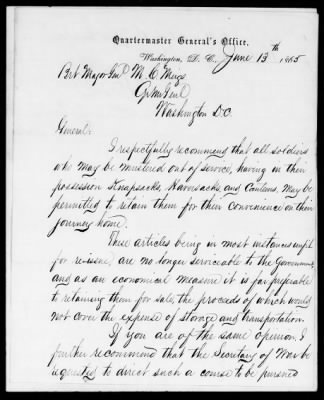 Quartermaster General's Office,
Washington, D. C., June 13th 1865
Bvt Major Genl M. C. Meigs
Qr Mr Genl
Washington D.C.
General:
I respectfully recommend that all soldiers
who may be mustered out of service, having in their
possession Knapsacks, Haversacks and Canteens, may be
permitted to retain them for their convenience on their
journey home.
These articles being in most instances unfit
for re-issue, are no longer serviceable to the Government
and as an economical measure it is far preferable
to retaining them for sale, the proceeds of which would
not cover the expense of storage and transportation.
If you are of the same opinion, I
further recommend that the Secretary of War be
requested to direct such a course to be pursued